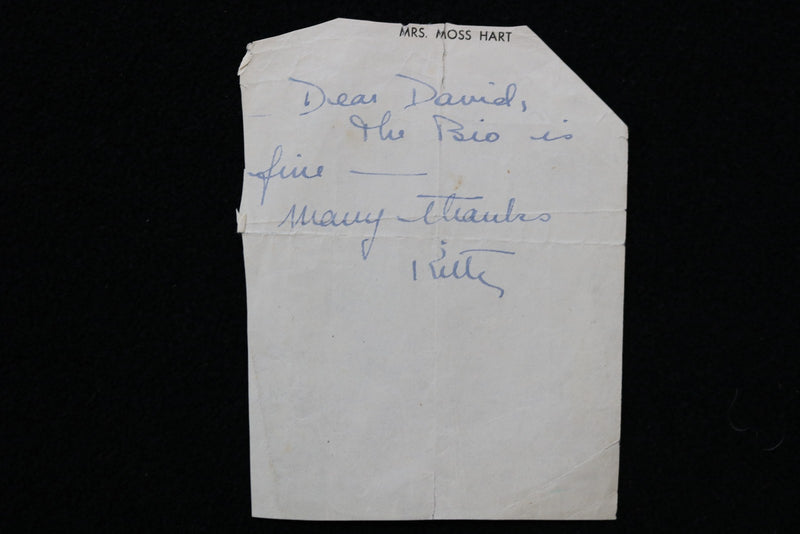 MRS. MOSS HART
Dear David,
the Bio is
fine —
Many thanks
Kitty